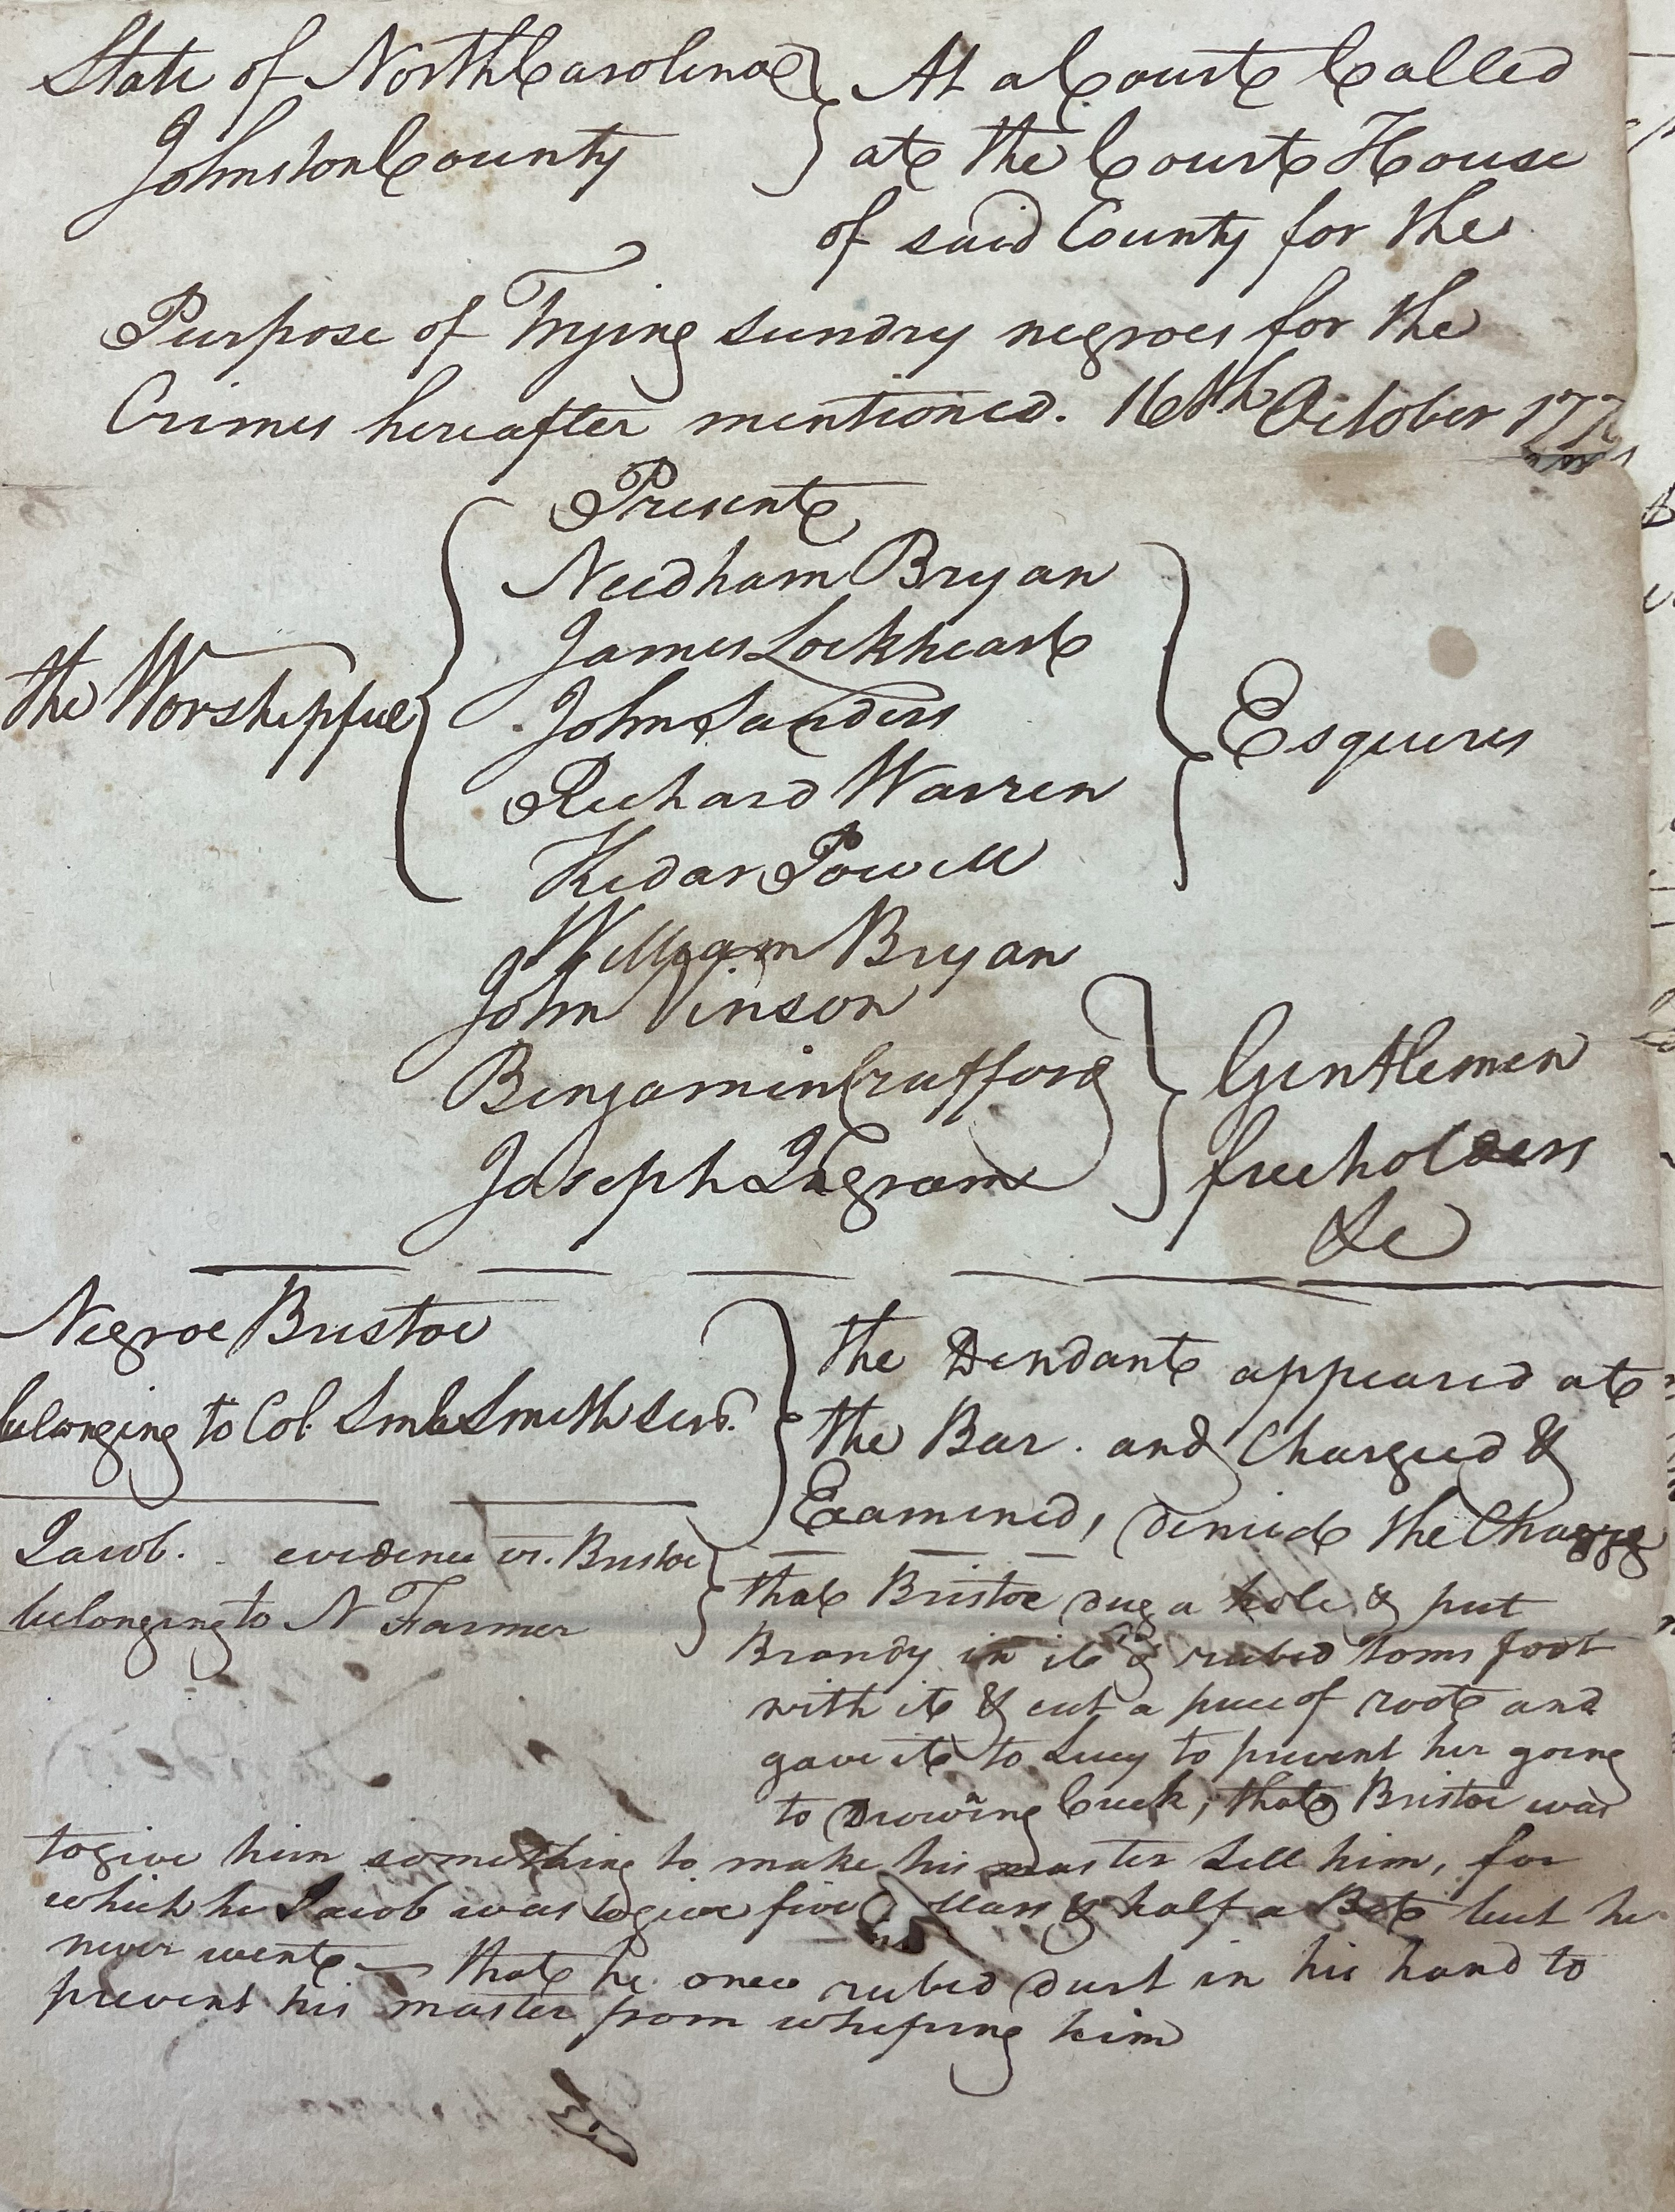 State of North Carolina } At a Court Called
Johnston County } at the Court House
of said County for the
Purpose of Trying sundry negroes for the
Crimes hereafter mentioned. 16th October 177
Present
Needham Bryan
James Lockheart
the Worshipful { John Sanders } Esquires
Richard Warren
Kedar Powell
William Bryan
John Vinson
Benjamin Crafford } Gentlemen
Joseph Ingram } freeholders
&c
Negroe Bristoe } the Dendant appeared at
belonging to Col. Smith Senr. } the Bar. and Charged &
Examined, denied the Charge
Jacob. evidence vs. Bristoe } that Bristoe dug a hole & put
belonging to N Farmer } Brandy in it & rubed Toms foot
with it & cut a piece of root and
gave it to Lucy to prevent her going
to Drowing Creek, that Bristoe was
to give him something to make his master sell him, for
which he Jacob was to give five & half a Bit but he
never went — that he once rubed dust in his hand to
prevent his master from whiping him